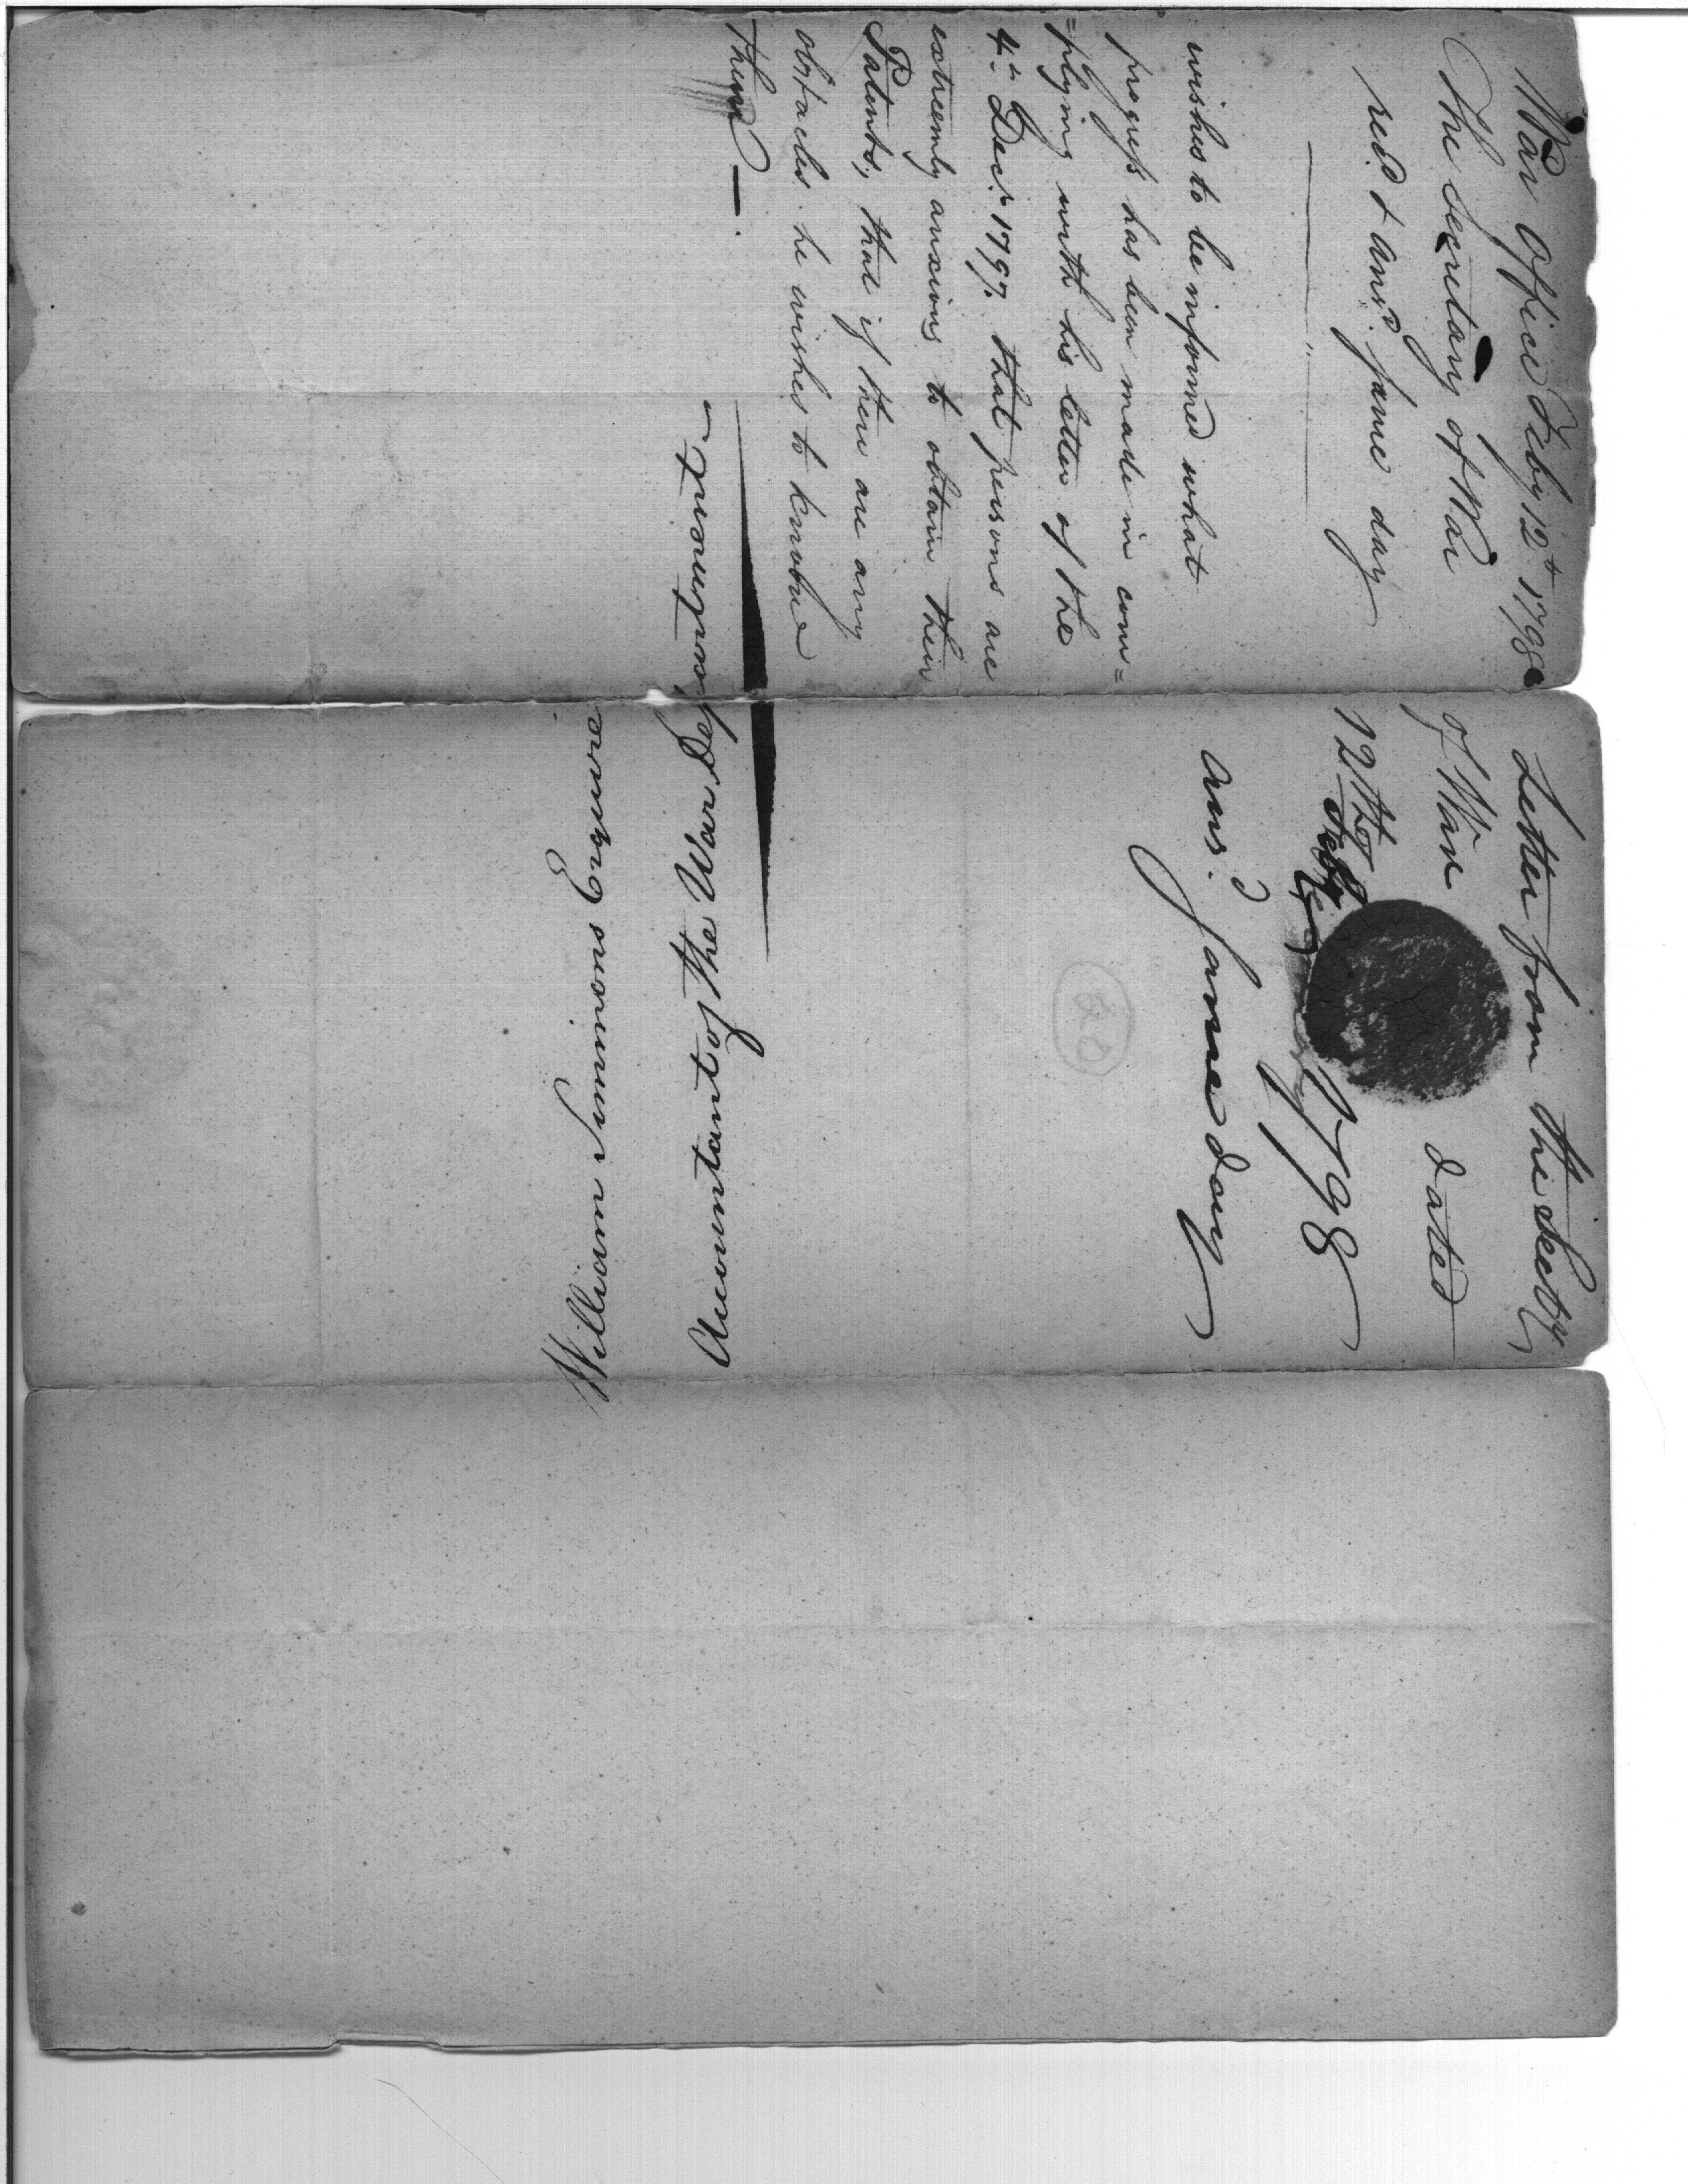 War Office Feby 12th 1798
The Secretary of War
recd & ansd. same day
wishes to be informed what
progress has been made in com=
=plying with his letter of the
4th Decr. 1797. that persons are
extreemly anxious to obtain their
Patents, that if there are any
obstacles he wishes to know
them —.
Letter from the Secty
of War dated
12th Feby 1798
ansd. same day
20
William Simmons Esquire
Accountant of the War Department —